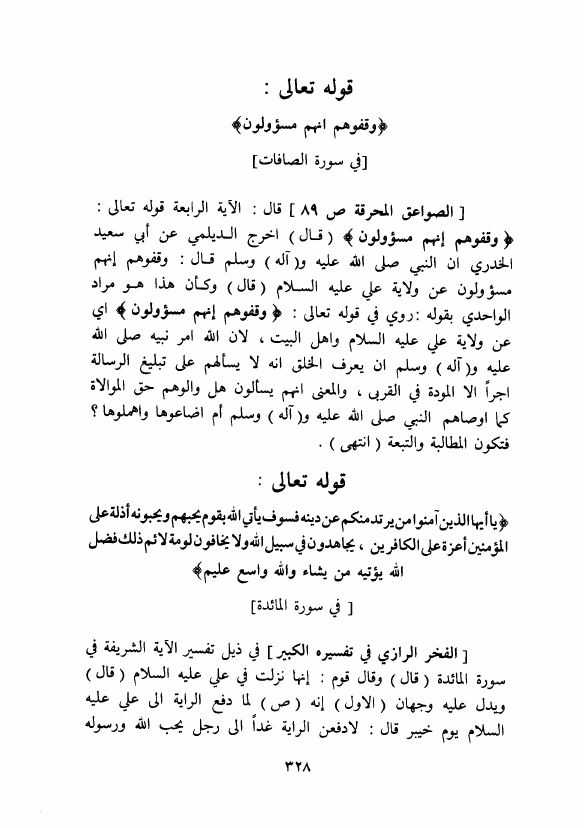 قوله تعالى :
﴿وقفوهم انهم مسؤولون﴾
[في سورة الصافات]
[ الصواعق المحرقة ص ٨٩ ] قال : الآية الرابعة قوله تعالى :
﴿ وقفوهم إنهم مسؤولون ﴾ ( قال ) اخرج الديلمي عن أبي سعيد
الخدري ان النبي صلى الله عليه و( آله ) وسلم قال : وقفوهم إنهم
مسؤولون عن ولاية علي عليه السلام ( قال ) وكأن هذا هو مراد
الواحدي بقوله : روي في قوله تعالى : ﴿ وقفوهم إنهم مسؤولون ﴾ اي
عن ولاية علي عليه السلام واهل البيت ، لان الله امر نبيه صلى الله
عليه و( آله ) وسلم ان يعرف الخلق انه لا يسألهم على تبليغ الرسالة
اجراً الا المودة في القربى ، والمعنى انهم يسألون هل والوهم حق الموالاة
كما اوصاهم النبي صلى الله عليه و( آله ) وسلم أم اضاعوها واهملوها ؟
فتكون المطالبة والتبعة ( انتهى ) .
قوله تعالى :
﴿يا أيها الذين آمنوا من يرتد منكم عن دينه فسوف يأتي الله بقوم يحبهم ويحبونه أذلة على
المؤمنين أعزة على الكافرين ، يجاهدون في سبيل الله ولا يخافون لومة لائم ذلك فضل
الله يؤتيه من يشاء والله واسع عليم﴾
[ في سورة المائدة]
[ الفخر الرازي في تفسيره الكبير ] في ذيل تفسير الآية الشريفة في
سورة المائدة ( قال ) وقال قوم : إنها نزلت في علي عليه السلام ( قال )
ويدل عليه وجهان ( الاول ) إنه ( ص ) لما دفع الراية الى علي عليه
السلام يوم خيبر قال : لادفعن الراية غداً الى رجل يحب الله ورسوله
٣٢٨